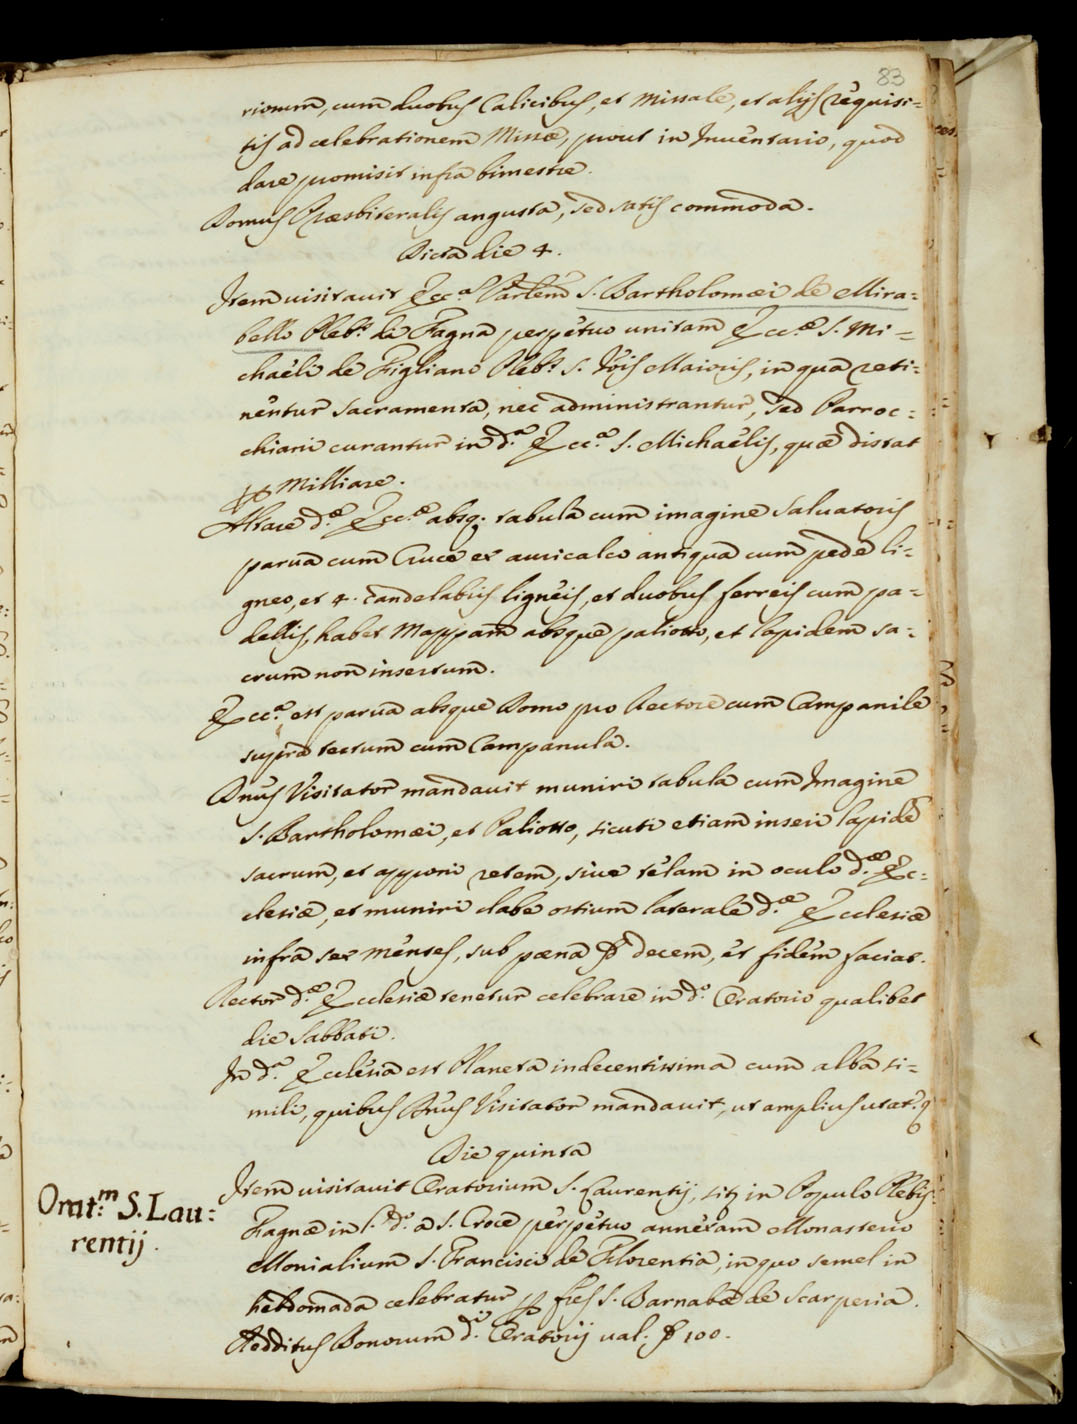 83
rionum, cum duobus Calicibus, et Missale, et alijs requisi=
tis ad celebrationem Missæ, prout in Inventario, quod
dare promisit infra bimestre.
Domus Præsbiteralis angusta, sed satis commoda.
Dicta die 4.
Item visitavit Ecc.ᵃ S. Bartholomæi de Mira=
bello Pleb.ˢ da Fagna perpetuo unitam Ecc.æ S. Mi=
chaeli de Figliano Pleb.ˢ S. Jois Maioris, in qua reti=
nentur sacramenta, nec administrantur, sed Parroc=
chiani curantur in d.ᵃ Ecc.ᵃ S. Michaelis, quæ distat
p Milliare.
Altare d.æ Ecc.æ absq; tabula cum imagine Salvatoris
parva cum Cruce ex auricalco antiqua cum pede li=
gneo, et 4. candelabris ligneis, et duobus ferreis cum pa=
dellis, habet Mappam absque paliotto, et lapidem sa=
crum non insertum.
Ecc.ᵃ est parva absque Domo pro Rectore cum Campanile
supra tectum cum Campanula.
Dnus Visitator mandavit muniri tabula cum Imagine
S. Bartholomæi, et Paliotto, sicuti etiam inseri lapide
sacrum, et apponi retem, sive telam in oculo d.æ Ec=
clesiæ, et muniri clave ostium laterale d.æ Ecclesiæ
infra sex menses, sub pæna decem, et fidem faciat.
Rector d.æ Ecclesiæ tenetur celebrare in d.º Oratorio qualibet
die Sabbati.
In d.ᵃ Ecclesia est Planeta indecentissima cum alba si=
mili, quibus Dnus Visitator mandavit, ut amplius utat.ʳ
Die quinta
Item visitavit Oratorium S. Laurentij, sit; in Populo Plebis
Fagnæ in l.º d.º a S. Croce perpetuo annexam Monasterio
Monialium S. Francisci de Florentia, in quo semel in
hebdomada celebratur p fres S. Barnabæ de Scarperia.
Redditus Bonorum d.ⁱ Oratorij val. 100.
Orat.ᵐ S. Lau:
rentij.